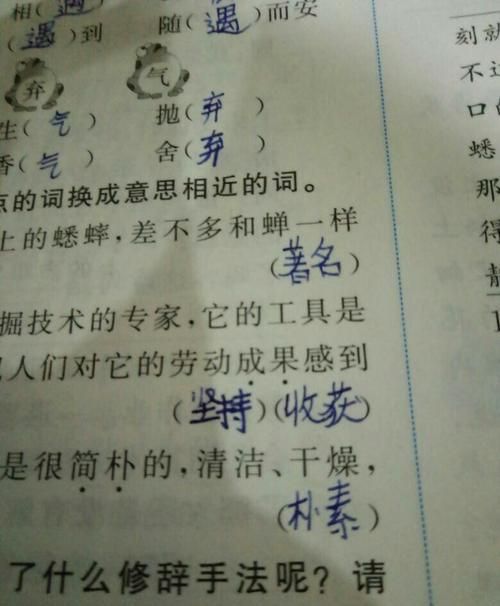 相(遇)  随(遇)而安
(遇)到
弃  气
生(气)  抛(弃)
香(气)  舍(弃)
点的词换成意思相近的词。
上的蟋蟀,差不多和蝉一样
(著名)
掘技术的专家,它的工具是
人们对它的劳动成果感到
(坚持)(收获)
是很简朴的,清洁、干燥,
(朴素)
了什么修辞手法呢?请
刻就
不过
口的
蟋
那
得
静
1